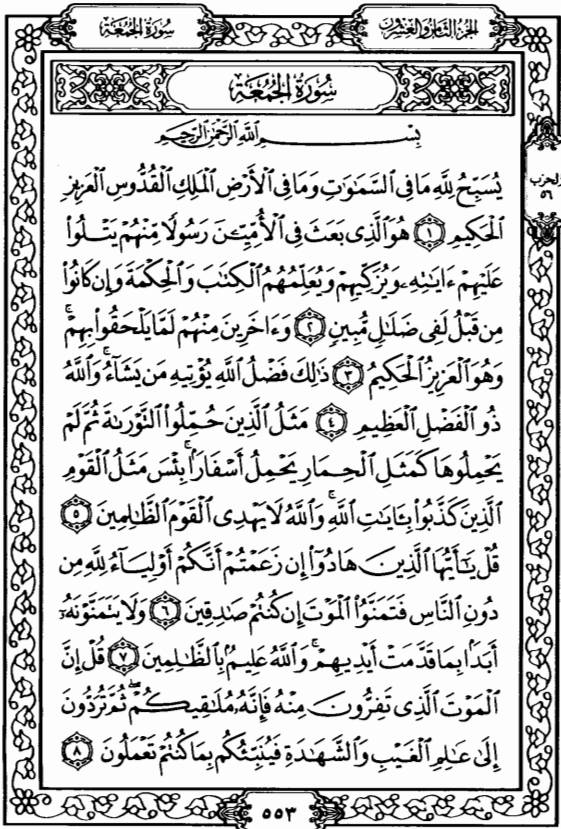 سُورَةُ الجُمُعَةِ
الجُزْءُ الثَّامِنُ وَالعِشْرُونَ
سُورَةُ الجُمُعَةِ
بِسْمِ اللَّهِ الرَّحْمَٰنِ الرَّحِيمِ
الحزب
٥٦
يُسَبِّحُ لِلَّهِ مَا فِى ٱلسَّمَٰوَٰتِ وَمَا فِى ٱلْأَرْضِ ٱلْمَلِكِ ٱلْقُدُّوسِ ٱلْعَزِيزِ
ٱلْحَكِيمِ ١ هُوَ ٱلَّذِى بَعَثَ فِى ٱلْأُمِّيِّـۧنَ رَسُولًا مِّنْهُمْ يَتْلُوا۟
عَلَيْهِمْ ءَايَٰتِهِۦ وَيُزَكِّيهِمْ وَيُعَلِّمُهُمُ ٱلْكِتَٰبَ وَٱلْحِكْمَةَ وَإِن كَانُوا۟
مِن قَبْلُ لَفِى ضَلَٰلٍ مُّبِينٍ ٢ وَءَاخَرِينَ مِنْهُمْ لَمَّا يَلْحَقُوا۟ بِهِمْ ۚ
وَهُوَ ٱلْعَزِيزُ ٱلْحَكِيمُ ٣ ذَٰلِكَ فَضْلُ ٱللَّهِ يُؤْتِيهِ مَن يَشَآءُ ۚ وَٱللَّهُ
ذُو ٱلْفَضْلِ ٱلْعَظِيمِ ٤ مَثَلُ ٱلَّذِينَ حُمِّلُوا۟ ٱلتَّوْرَىٰةَ ثُمَّ لَمْ
يَحْمِلُوهَا كَمَثَلِ ٱلْحِمَارِ يَحْمِلُ أَسْفَارًۢا ۚ بِئْسَ مَثَلُ ٱلْقَوْمِ
ٱلَّذِينَ كَذَّبُوا۟ بِـَٔايَٰتِ ٱللَّهِ ۚ وَٱللَّهُ لَا يَهْدِى ٱلْقَوْمَ ٱلظَّٰلِمِينَ ٥
قُلْ يَٰٓأَيُّهَا ٱلَّذِينَ هَادُوٓا۟ إِن زَعَمْتُمْ أَنَّكُمْ أَوْلِيَآءُ لِلَّهِ مِن
دُونِ ٱلنَّاسِ فَتَمَنَّوُا۟ ٱلْمَوْتَ إِن كُنتُمْ صَٰدِقِينَ ٦ وَلَا يَتَمَنَّوْنَهُۥٓ
أَبَدًۢا بِمَا قَدَّمَتْ أَيْدِيهِمْ ۚ وَٱللَّهُ عَلِيمٌۢ بِٱلظَّٰلِمِينَ ٧ قُلْ إِنَّ
ٱلْمَوْتَ ٱلَّذِى تَفِرُّونَ مِنْهُ فَإِنَّهُۥ مُلَٰقِيكُمْ ۖ ثُمَّ تُرَدُّونَ
إِلَىٰ عَٰلِمِ ٱلْغَيْبِ وَٱلشَّهَٰدَةِ فَيُنَبِّئُكُم بِمَا كُنتُمْ تَعْمَلُونَ ٨
٥٥٣